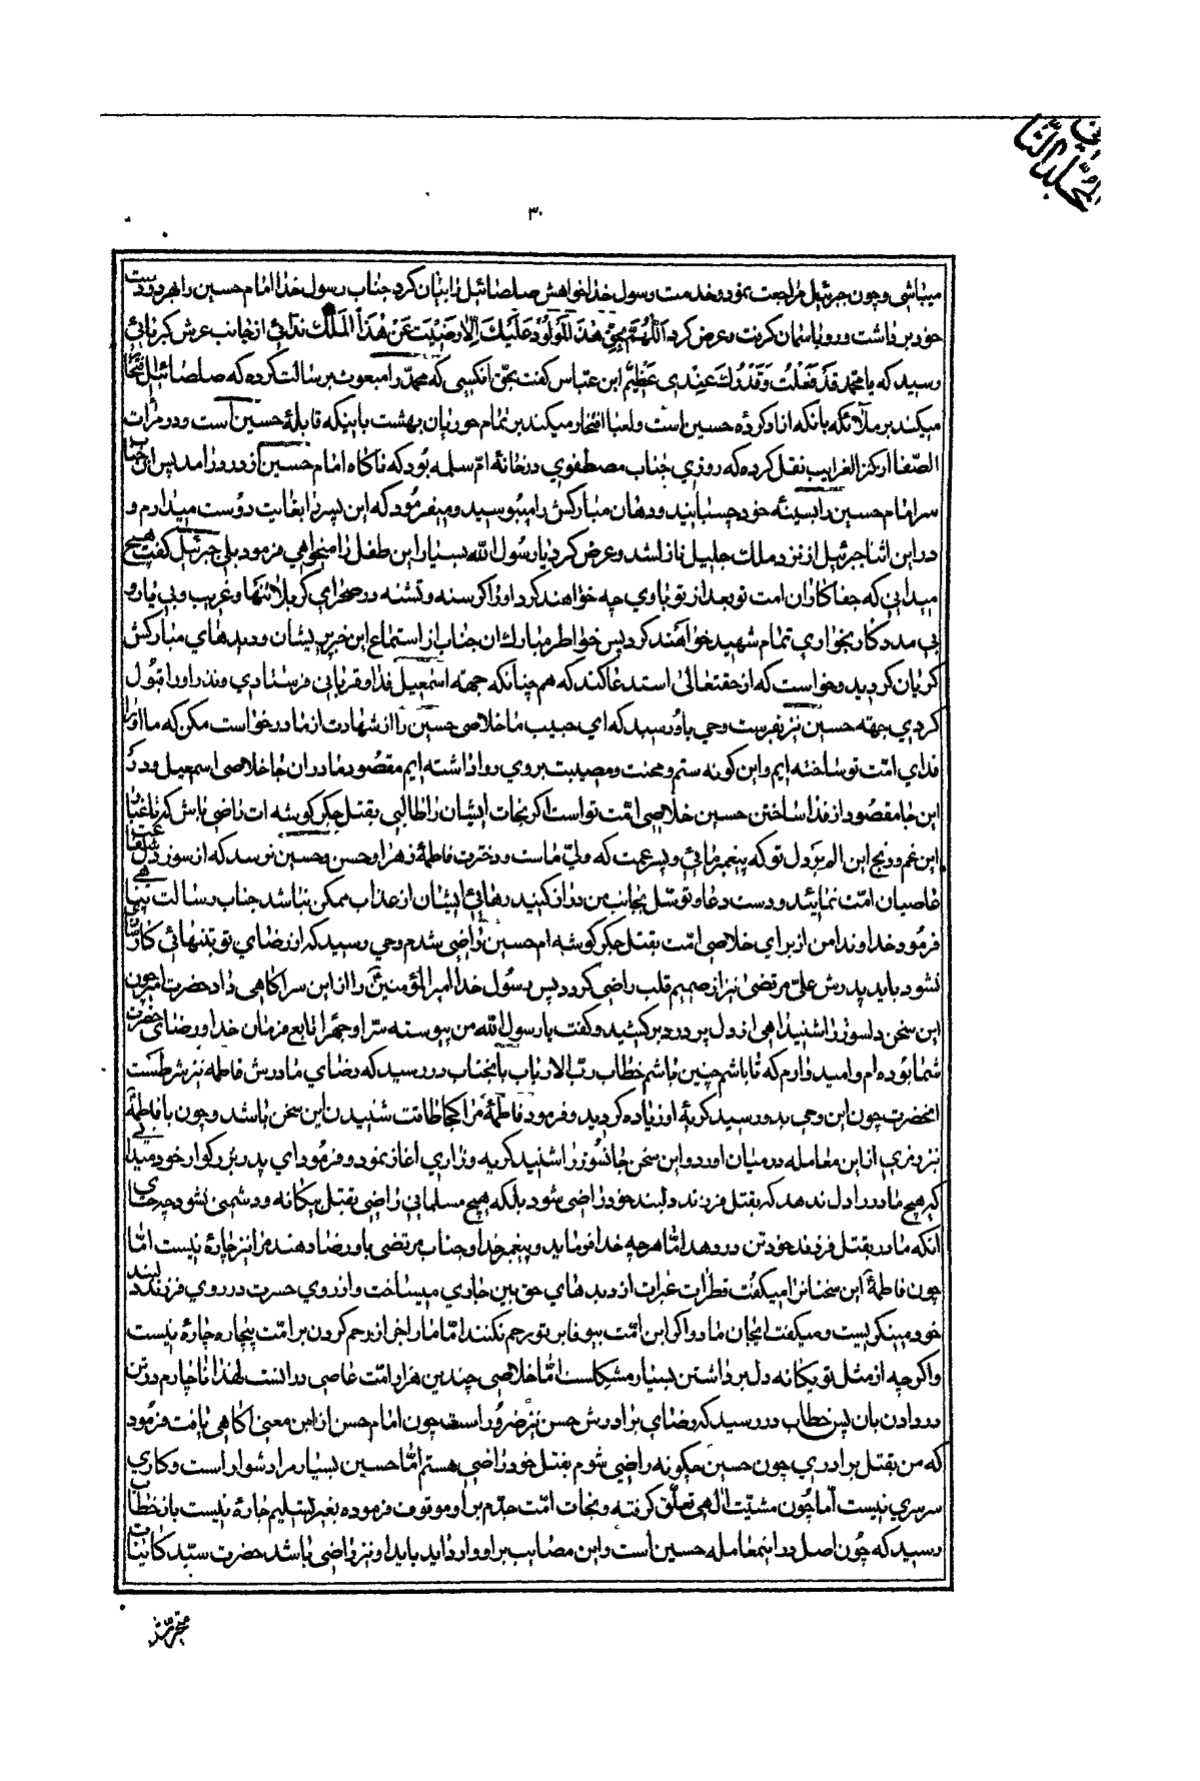 المجلد الثانى
۳۰
میباشی و چون جبرئیل مراجعت نمود و خدمت رسول خدا خواهش صلصائیل را بیان کرد جناب رسول خدا امام حسین را بهر دو دست
خود برداشت و رو باسمان کرفت و عرض کرد اَللّٰهُمَّ بِحَقِّ هٰذَا المَولُودِ عَلَیْكَ اِلّا رَضِیْتَ عَنْ هٰذَا المَلَك ندائی از جانب عرش کبریائی
رسید که یا محمّد قَدْ فَعَلْتُ وَقَدْرُكَ عِنْدِی عَظِیْم ابن عباس کفت بحق انکسی که محمّد را مبعوث برسالت کرده که صلصائیل افتخار
میکند بر ملائکه بانکه ازاد کردهٔ حسین است و لعبا افتخار میکند بر تمام حوریان بهشت باینکه قابلهٔ حسین است و در مرأت
الصّفا از کنز الغرایب نقل کرده که روزی جناب مصطفوی در خانهٔ امّ سلمه بُود که ناکاه امام حسین از در در امد پس ان جناب
سر امام حسین را بسینهٔ خود چسبانید و دهان مبارکش را میبوسید و میفرمُود که این پسر را بغایت دوست میدارم و
در این اثنا جبرئیل از نزد ملك جلیل نازلشد و عرض کرد یا رسُول الله بسیار این طفل را میخواهی فرمود بلی جبرئیل کفت هیچ
میدانی که جفاکاران امت تو بعد از تو باوی چه خواهند کرد او را کرسنه و تشنه در صحرای کربلا تنها و غریب و بی یار و
بی مددکار بخواری تمام شهید خواهند کرد پس خواطر مبارك ان جناب از استماع این خبر پریشان و دیدهای مبارکش
کریان کردید و خواست که از حقتعالی استدعا کند که هم چنانکه جهته اسمٰعیل فدا و قربانی فرستادی و نذر او را قبُول
کردی جهته حسین نیز بفرست وحی باو رسید که ای حبیب ما خلاصی حسین را از شهادت از ما درخواست مکن که ما او را
فدای امّت تو ساخته ایم و این کونه ستم و محنت و مصیبت بر وی روا داشته ایم مقصُود ما در ان جا خلاصی اسمعیل و در
این جا مقصُود از فدا ساختن حسین خلاصی امّت تو است اکر نجات ایشان را طالبی بقتل جکر کوشه ات راضی باش که تا غبار
این غم و رنج این الم بر دل تو که پیغمبر مائی و پسر عمت که ولیّ ماست و دخترت فاطمهٔ زهرا و حسن و حسین نرسد که از سوز دل شفاعت
عاصیان امّت نمائید و دست دعا و توسّل بجانب من دراز کنید رهائی ایشان از عذاب ممکن نباشد جناب رسالت پناهی
فرمُود خداوندا من از برای خلاصی امّت بقتل جکر کوشه ام حسین راضی شدم وحی رسید که از رضای تو بتنهائی کار راست
نشود باید پدرش علیّ مرتضی نیز از صمیم قلب راضی کردد پس رسُول خدا امیرالمؤمنین را از این سر اکاهی داد حضرت امیر چون
این سخن دلسوز را شنید اهی از دل پر درد بر کشید و کفت یا رسول الله من پیوسته سرّا و جهرا تابع فرمان خدا و رضای حضرت
شما بوده ام و امیدوارم که تا باشم چنین باشم خطاب ربّ الارباب بانجناب در رسید که رضای مادرش فاطمه نیز شرطست
انحضرت چون این وحی بدو رسید کریهٔ او زیاده کردید و فرمود فاطمهٔ مرا کجا طاقت شنیدن این سخن باشد و چون با فاطمهٔ
نیز رمزی از این معامله در میان اورد و این سخن جانسُوز را شنید کریه و زاری اغاز نمود و فرمود ای پدر بزرکوار خود میدانی
که هیچ مادر را دل ندهد که بقتل فرزند دلبند خود راضی شود بلکه هیچ مسلمانی راضی بقتل بیکانه و دشمنی نشود چه جای
انکه مادر بقتل فرزند خود تن در دهد امّا هر چه خدا فرماید و پیغمبر خدا و جناب مرتضی باو رضا دهند مرا نیز چارهٔ نیست امّا
چون فاطمهٔ این سخنانرا میکفت قطرات عبرات از دیدهای حق بین جاری میساخت و از روی حسرت در روی فرزند دلبند
خود مینکریست و میکفت ایجان مادر اکر این امّت بیوفا بر تو رحم نکنند امّا ما را جز از رحم کردن بر امّت بیچاره چارهٔ نیست
و اکر چه از مثل تو یکانه دل برداشتن بسیار مشکلست امّا خلاصی چندین هزار امّت عاصی در انست لهذا ناچارم در تن
در دادن بان پس خطاب در رسید که رضای برادرش حسن نیز ضرور است چون امام حسن از این معنی اکاهی یافت فرمُود
که من بقتل برادری چون حسین چکونه راضی شوم بقتل خود راضی هستم امّا حسین بسیار مرا دشوار است و کاری
سرسری نیست اما چون مشیّت الٰهی تعلّق کرفته و نجات امّت جدّم بر او موقوف فرموده بغیر تسلیم چارهٔ نیست باز خطاب
رسید که چُون اصل در اینمعامله حسین است و این مصایب بر او وارد اید باید او نیز راضی باشد حضرت سیّد کاینات